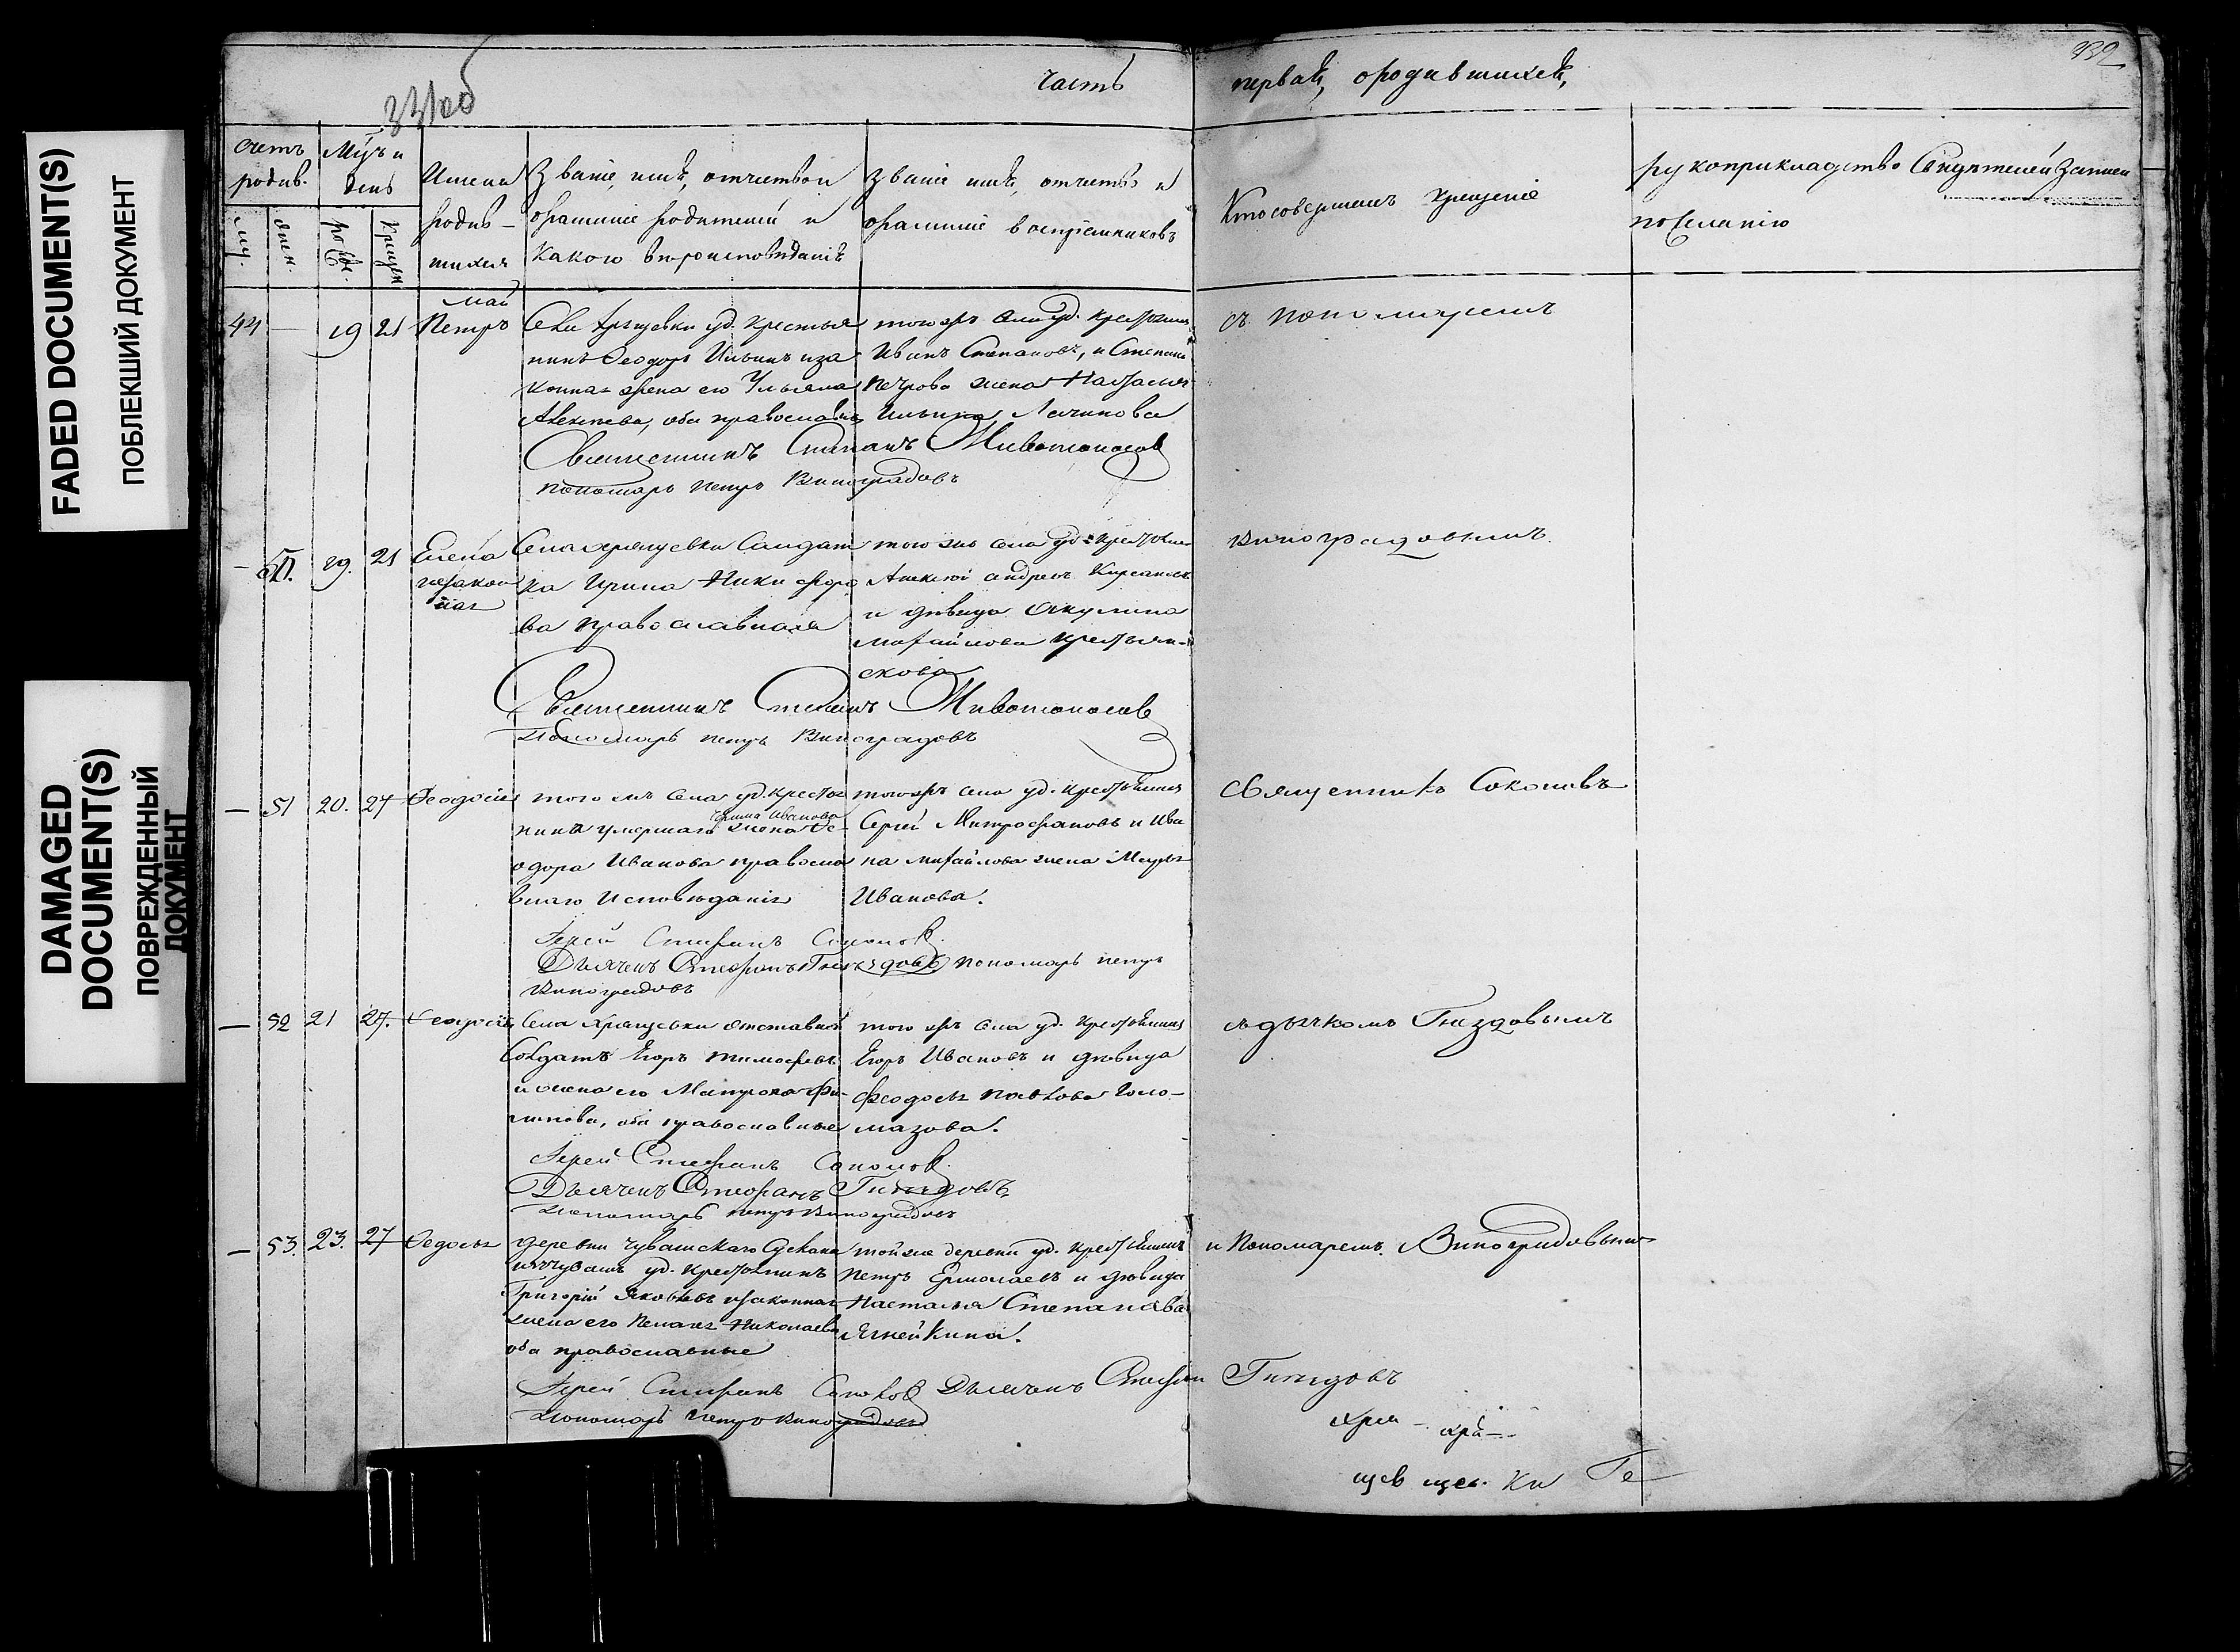 FADED DOCUMENT(S)
ПОБЛЕКШИЙ ДОКУМЕНТ
DAMAGED DOCUMENT(S)
ПОВРЕЖДЕННЫЙ ДОКУМЕНТ
часть
первая, о родившихся,
счетъ родив.
муж.
жен.
Мѣся. и день
рожд.
крещен.
Имена родив-
шихся
Званіе, имя, отчество и
фамиліе родителей и
какого вѣроисповѣданія
Званіе имя, отчество и
фамиліе воспріемниковъ
Кто совершалъ крещеніе
рукоприкладство Свидѣтелей записи
по желанію
май
44 — 19 21 Петръ
Села Хрящевки уд. крестья
нинъ Ѳеодоръ Ильинъ и за
конная жена его Ульяна
Алексѣева, оба православн
того жъ села уд. крестьян
Иванъ Степановъ, и Степана
Петрова жена Наталья
Ильина
съ пономаремъ
Священникъ Стефанъ Животоносов
пономарь Петръ Виноградовъ
— 19. 21 Елена
незакон
ная
Села Хрящевки Салдат
ка Ирина Никифоро
ва православная
того же села уд. крестьян
Алексѣй Андреевъ
и дѣвица Акулина
Михайлова
скова
Виноградовымъ.
Священникъ Стефанъ Животоносов
Пономарь Петръ Виноградовъ
— 51 20. 27 Ѳеодосія
того жъ села уд. кресть
Ирина Иванова
нина умершаго жена Ѳе-
одора Иванова правосла
внаго исповѣданія
того жъ села уд. крестьянинъ
Сергей Митрофановъ и Ива
на Михайлова жена
Иванова.
Священникъ Соколовъ
Іерей Стефанъ Соколов
Дьячекъ Стефанъ Гнѣздовъ пономарь Петръ
Виноградовъ
— 52 21 27. Ѳеодосія
Села Хрящевки отставной
Солдатъ Егоръ Тимофеевъ
и жена его Матрона Фи-
липова, оба православные
того жъ села уд. крестьянинъ
Егоръ Ивановъ и дѣвица
Феодосья Павлова Голо-
мазова.
съ дьячкомъ Гнездовымъ
Іерей Стефанъ Соколов
Дьячекъ Стефанъ Гнѣздовъ
пономарь Петръ Виноградовъ
— 53. 23. 27 Ѳедосья
Деревни Чувашскаго Сускана
уд. крестьянинъ
Григорій Яковлевъ и законная
жена его Пелагея Николаева
оба православные
той же деревни уд. крестьянинъ
Петръ Ермолаевъ и дѣвица
Настасья Степанова
Ягнейкина.
и Пономаремъ Виноградовымъ
Іерей Стефанъ Соколов Дьячекъ Стефан Гнѣздовъ
пономарь Петръ Виноградовъ
Хря- хря-
щев щев. ки Ге